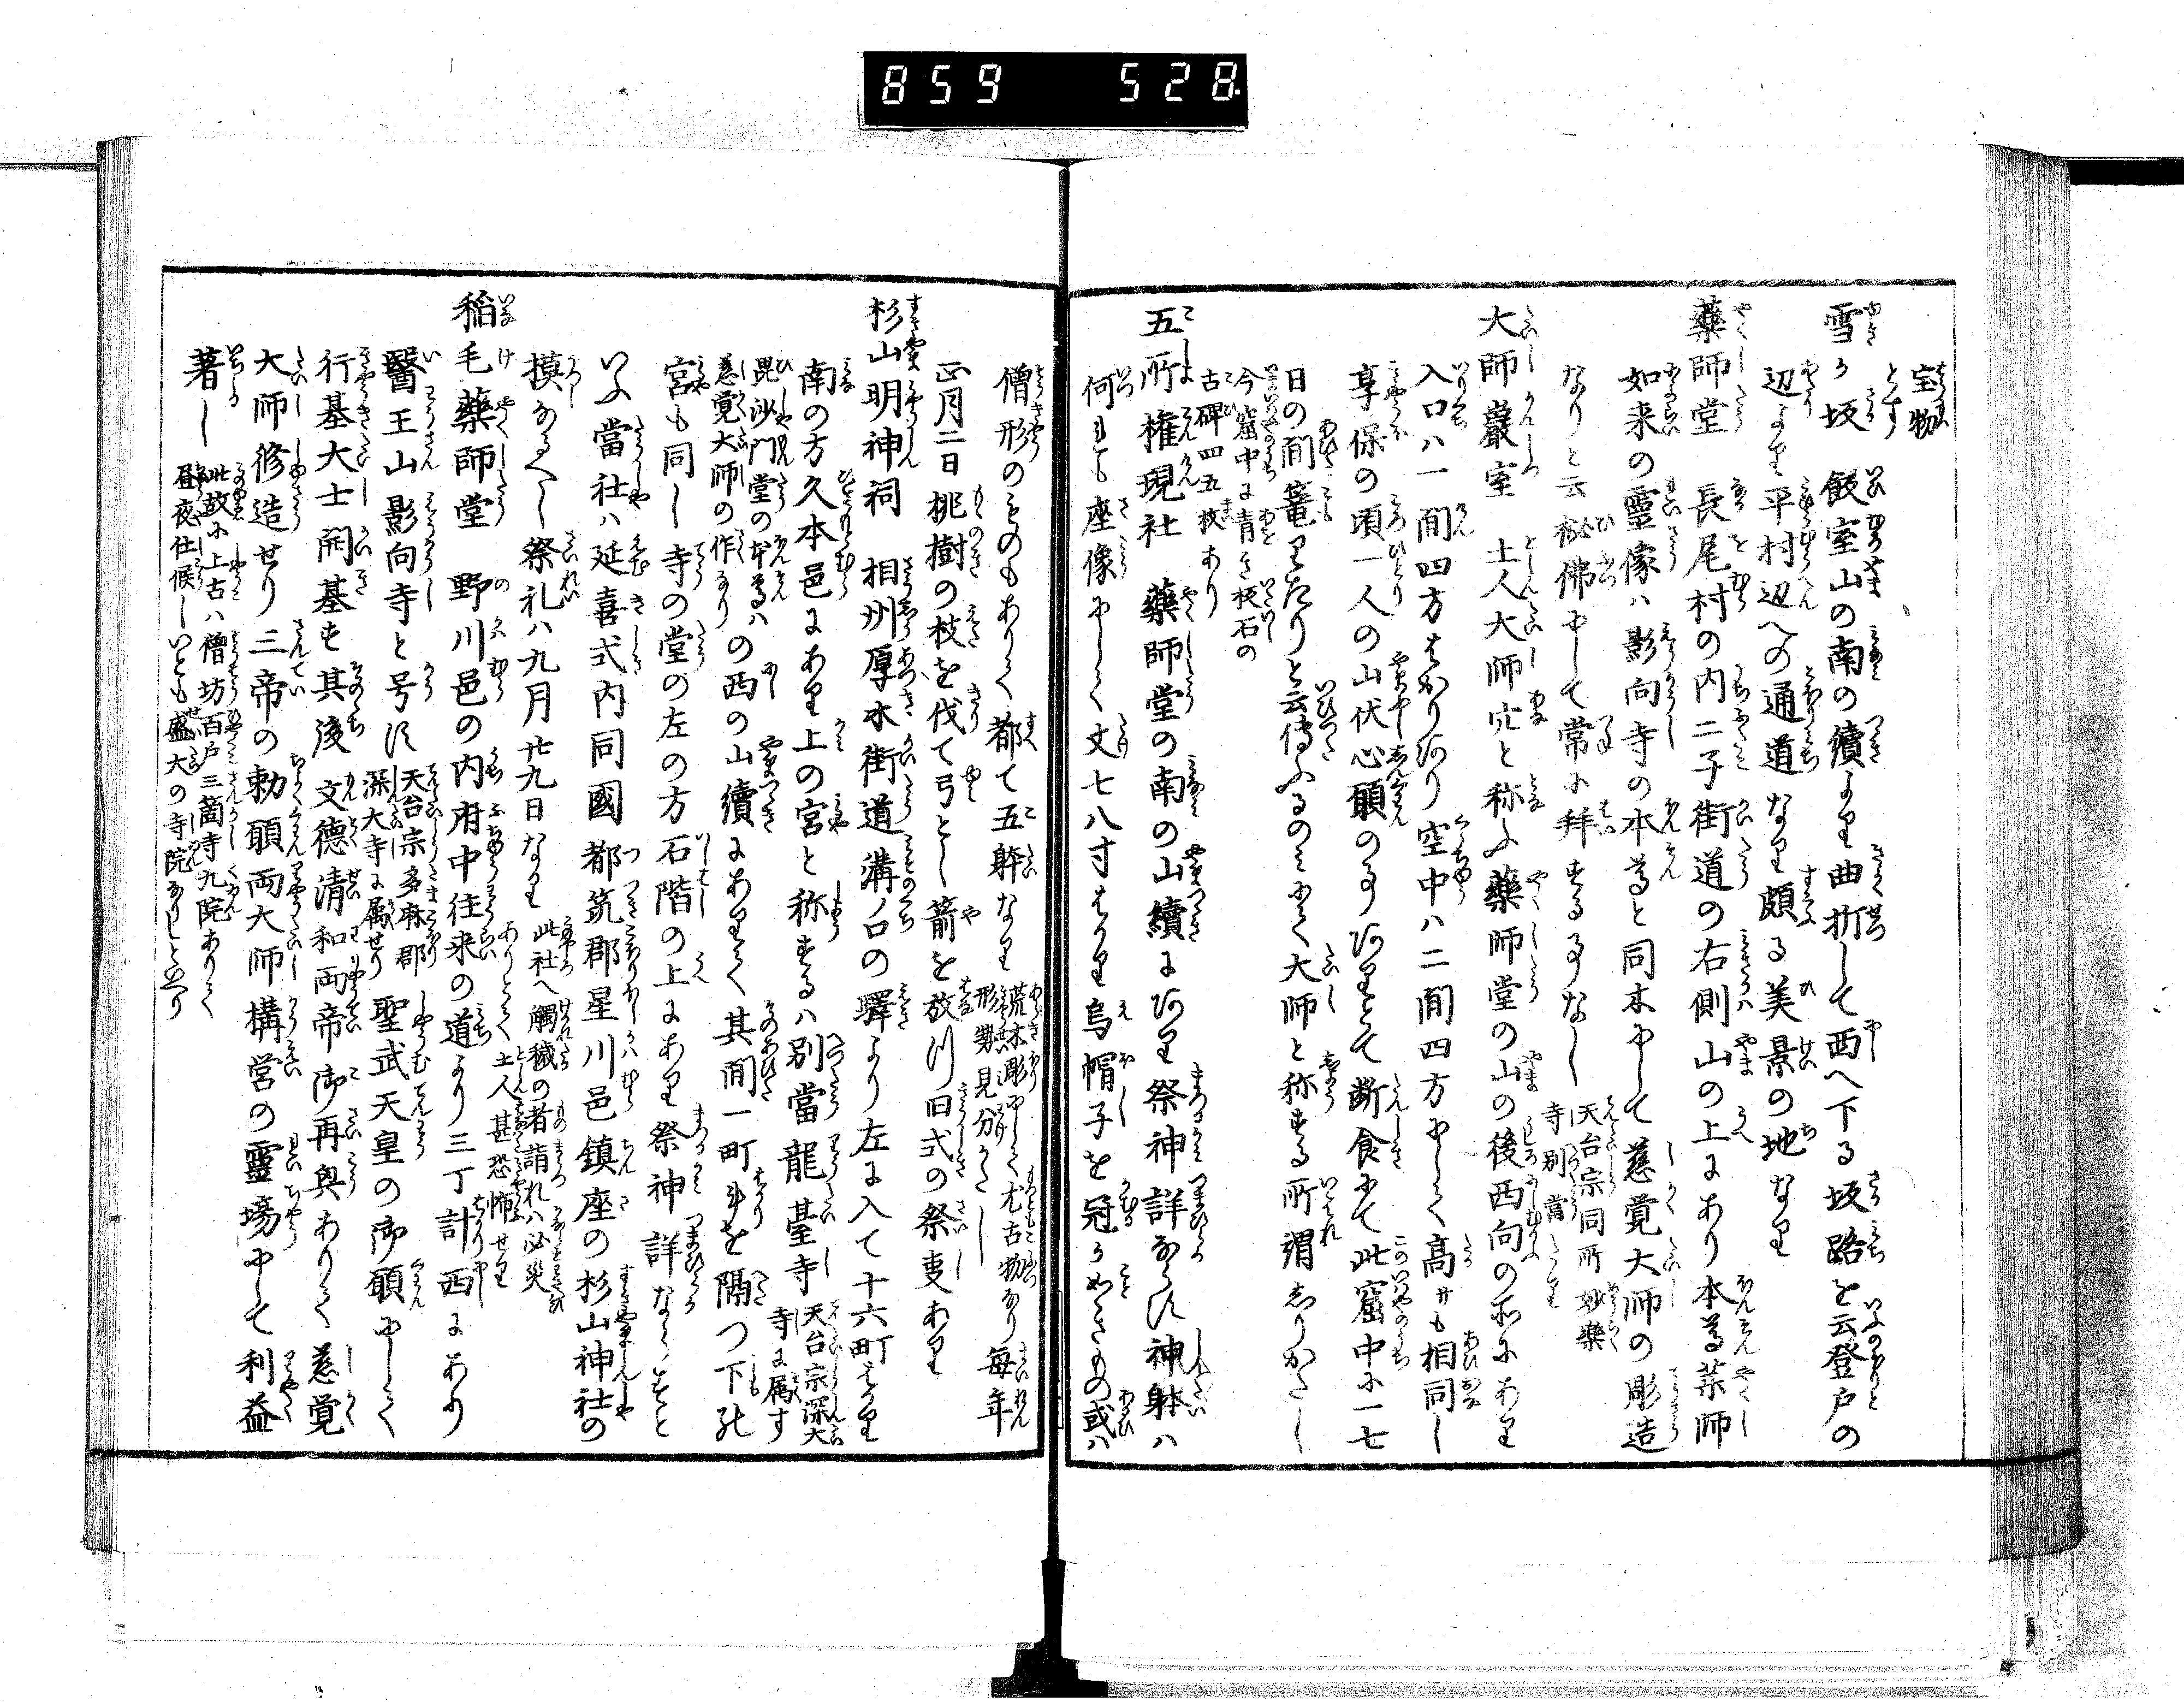 859 528
宝物とす
雪か坂 飯室山の南の續より曲折して西へ下る坂路を云登戸の
辺より平村辺への通道なり頗る美景の地なり
藥師堂 長尾村の内二子街道の右側山の上にあり本尊薬師
如来の靈像ハ影向寺の本尊と同木にして慈覚大師の彫造
なりと云秘佛にして常に拜する事なし 天台宗同所妙樂
寺別當たり
大師巖室 土人大師穴と称ふ藥師堂の山の後西向の所にあり
入口ハ一間四方はかりあり空中ハ二間四方にして高サも相同し
享保の頃一人の山伏心願の事ありとて断食にて此窟中に一七
日の間篭りたりと云傳ふるのミにて大師と称する所謂しりかたし
今窟中に青き板石の
古碑四五枚あり
五所権現社 藥師堂の南の山續にあり祭神詳ならす神躰ハ
何れも座像にして丈七八寸はかり烏帽子を冠かふれるもの或ハ
僧形のものもありて都て五躰なり 荒木彫にして尤古物なり毎年
形勢見分かたし
正月二日桃樹の枝を伐て弓とし箭を放つ旧式の祭事あり
杉山明神祠 相州厚木街道溝ノ口の驛より左に入て十六町はかり
南の方久本邑にあり上の宮と称するハ別當龍臺寺 天台宗深大
寺に属す
毘沙門堂の本尊ハ
慈覚大師の作なり の西の山續にありて其間一町許を隔つ下の
宮も同し寺の堂の左の方石階の上にあり祭神詳ならすと
いふ當社ハ延喜式内同國都筑郡星川邑鎮座の杉山神社の
摸なるへし祭礼ハ九月廿九日なり 此社へ觸穢の者詣れハ必災
ありとて土人甚恐怖せり
稲毛藥師堂 野川邑の内府中往来の道より三丁計西にあり
醫王山影向寺と号す 天台宗多麻郡
深大寺に属せり 聖武天皇の御願にして
行基大士開基す其後文徳清和両帝御再興ありて慈覚
大師修造せり三帝の勅願両大師構営の靈場にして利益
著し 此故に上古ハ僧坊百戸三箇寺九院ありて
昼夜仕候しいとも盛大の寺院なりしと云り